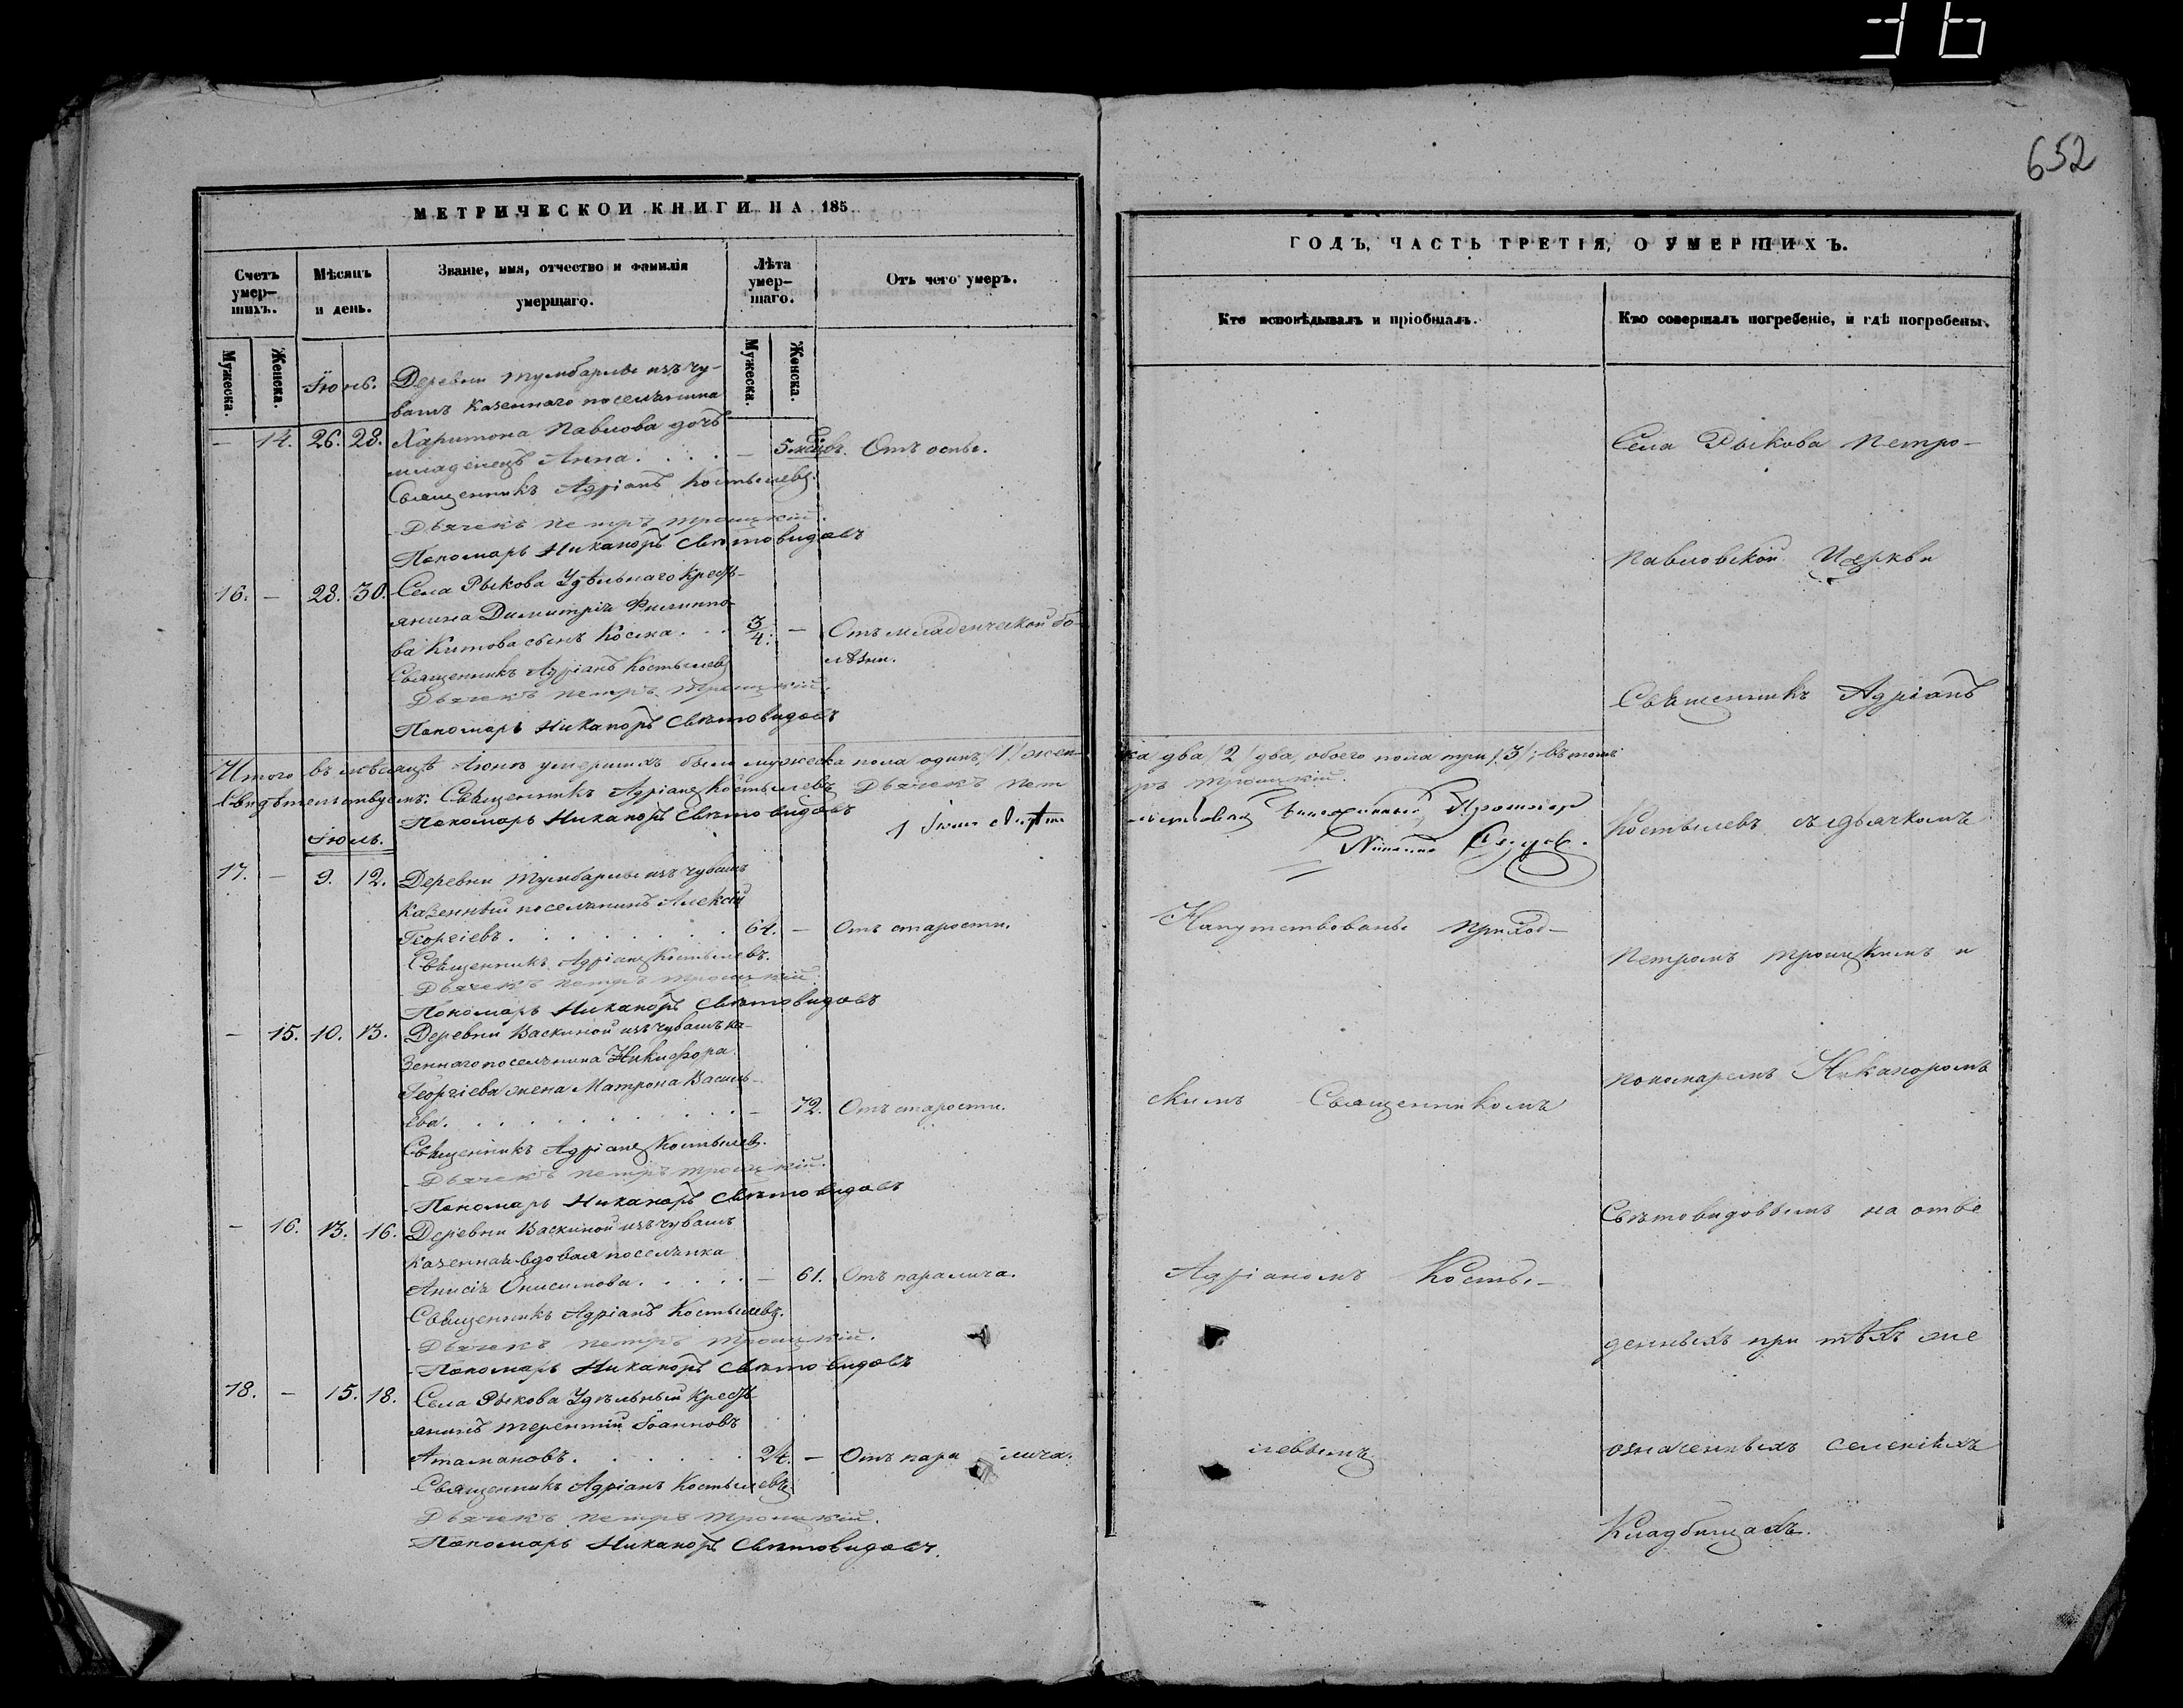 652
МЕТРИЧЕСКОЙ КНИГИ НА 185
Счетъ умер-шихъ.
Мѣсяцъ и день.
Званіе, имя, отчество и фамилія умершаго.
Лѣта умер-шаго.
Отъ чего умеръ.
Мужеска.
Женска.
Мужеска.
Женска.
Іюнь.
Деревни Тумбарлы изъ чу-
вашъ казеннаго поселянина
— 14. 26. 28. Харитона Павлова дочь
младенецъ Анна. — 5 мѣсцвъ. Отъ оспы.
Священникъ Адріанъ Костылевъ.
Дьячекъ Петръ Троицкій.
Пономарь Никаноръ Свѣтовидовъ
16. — 28. 30. Села Рыкова Удѣльнаго Кресть-
янина Димитрія Филиппо-
ва Китова сынъ Косма. 3/4. — Отъ младенческой бо-
лѣзни.
Священникъ Адріанъ Костылевъ
Дьячекъ Петръ Троицкій.
Пономарь Никаноръ Свѣтовидовъ
Итого въ мѣсяцѣ Іюнѣ умершихъ было мужеска пола одинъ /1/ жен-
ска два /2/ два, обоего пола три /3/; въ томъ
свидѣтельствуемъ: Священникъ Адріанъ Костылевъ Дьячекъ Пет
ръ Троицкій.
Пономарь Никаноръ Свѣтовидовъ
Іюль.
17. — 9. 12. Деревни Тумбарлы изъ чувашъ
казенный поселянинъ Алексій
Георгіевъ. 64. — Отъ старости.
Священникъ Адріанъ Костылевъ.
Дьячекъ Петръ Троицкій.
Пономарь Никаноръ Свѣтовидовъ
— 15. 10. 13. Деревни Васкиной изъ чувашъ ка-
зеннаго поселянина Никифора
Георгіева жена Матрона Василь-
ева. — 72. Отъ старости.
Священникъ Адріанъ Костылевъ.
Дьячекъ Петръ Троицкій.
Пономарь Никаноръ Свѣтовидовъ
— 16. 13. 16. Деревни Васкиной изъ чувашъ
казенная вдовая поселянка
Анисія Онисимова. — 61. Отъ паралича.
Священникъ Адріанъ Костылевъ.
Дьячекъ Петръ Троицкій.
Пономарь Никаноръ Свѣтовидовъ
18. — 15. 18. Села Рыкова Удѣльный Кресть-
янинъ Терентій Іоанновъ
Атамановъ. 24. — Отъ паралича.
Священникъ Адріанъ Костылевъ
Дьячекъ Петръ Троицкій.
Пономарь Никаноръ Свѣтовидовъ.
ГОДЪ, ЧАСТЬ ТРЕТІЯ, О УМЕРШИХЪ.
Кто исповѣдывалъ и пріобщалъ.
Кто совершалъ погребеніе, и гдѣ погребены.
Напутствованы приход-
скимъ Священникомъ
Адріаномъ Косты-
левымъ
Села Рыкова Петро-
Павловской Церкви
Священникъ Адріанъ
Костылевъ съ дьячкомъ
Петромъ Троицкимъ и
пономаремъ Никаноромъ
Свѣтовидовымъ на отве
денныхъ при тѣхъ же
означенныхъ селеніяхъ
Кладбищахъ.